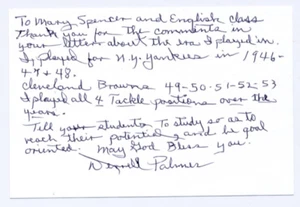 To Mary Spencer and English class
Thank you for the comments in
your letters about the era I played in.
I played for N.Y. Yankees in 1946-
47+48.
Cleveland Browns 49-50-51-52-53
I played all 4 Tackle positions over the
years.
Tell your students to study so as to
reach their potential, and be goal
oriented. May God Bless you.
Derrell Palmer